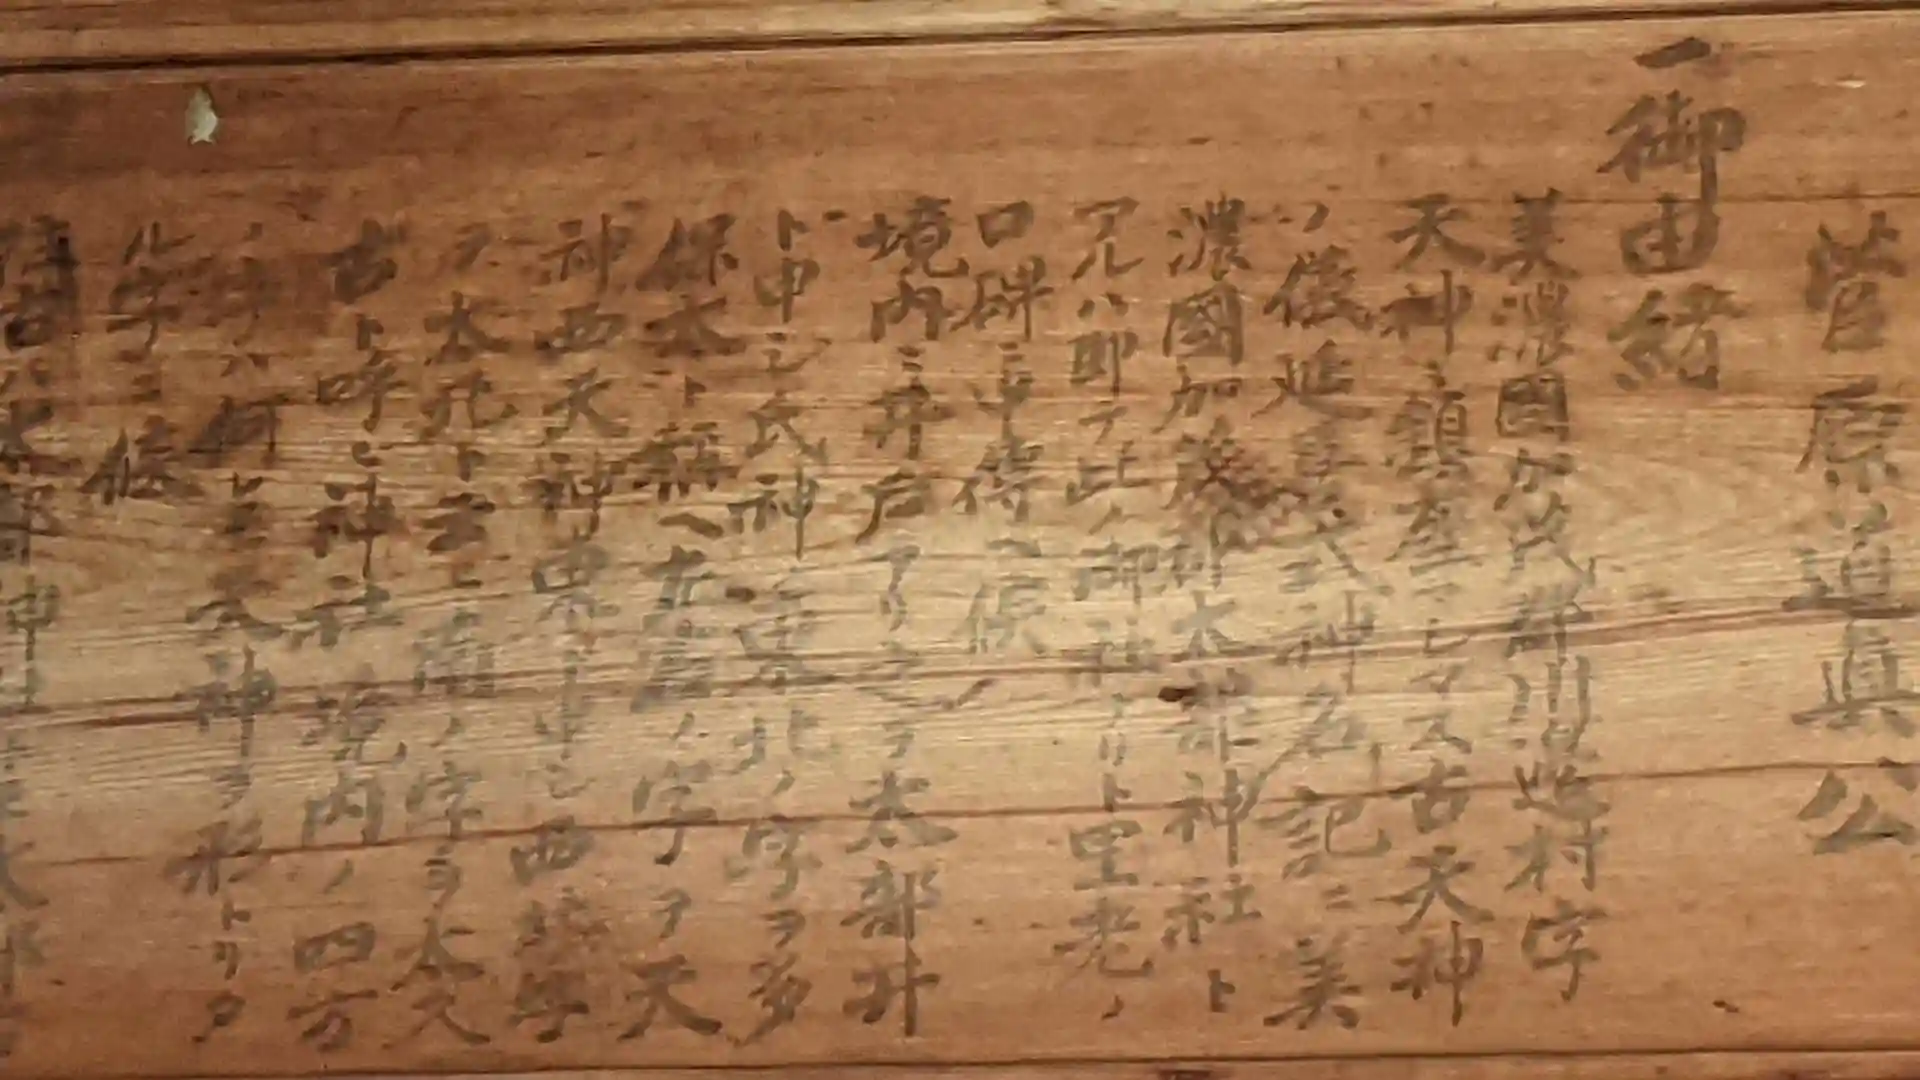 菅原道眞公
一御由緒
美濃國加茂郡川辺村字
天神ニ鎮座マシマス古天神
ソノ後延喜式神名記ニ美
濃國加茂郡太部神社ト
アルハ即チ此ノ御社ナリト里老ノ
口碑ニ申傳ヘ候
境内ニ井戸アリ之ヲ太部井
ト申シ氏神ニ東北ノ字ヲ多
保木ト稱ヘ ノ字ヲ天
神西天神東ト申シ西 字
ヲ太北ト云ヒ南ノ字ヲ太
古ト呼ヒ神社境内ノ四方
ノ字ハ何レモ天神ヲ形トリタ
ル字ニ候
ハ太部神社